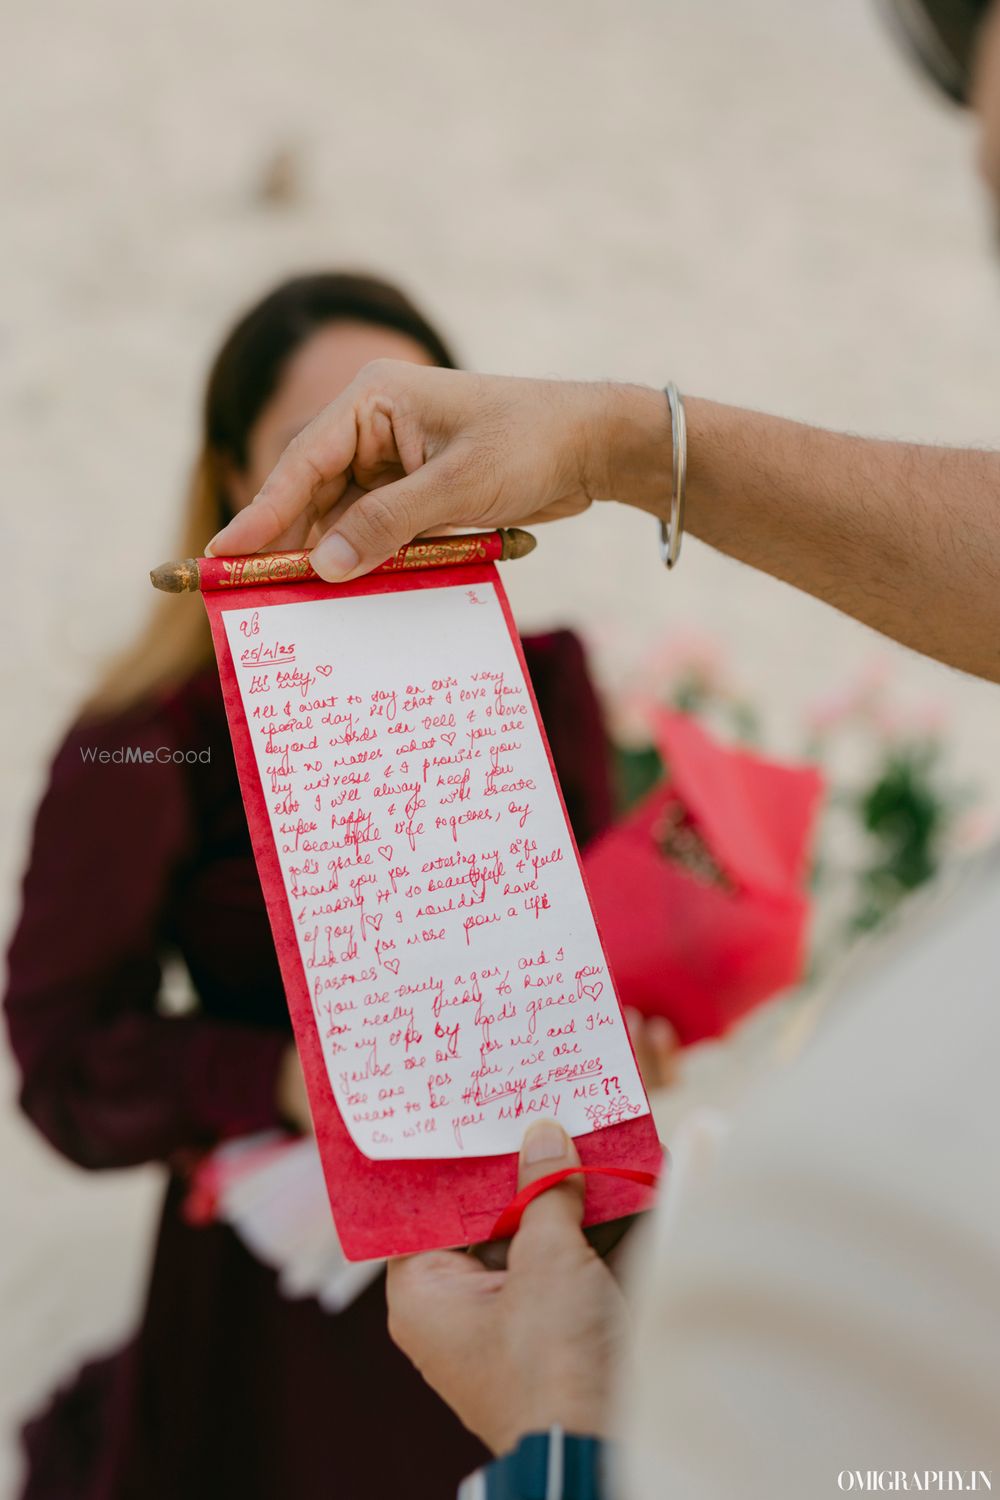 ੴ
25/4/25
Hi Baby, ♡
All I want to say on this very
special day, is that I love you
beyond words can tell & I love
you no matter what ♡ You are
my universe & I promise you
that I will always keep you
super happy & we will create
a beautiful life together, by
god's grace ♡
Thank you for entering my life
& making it so beautiful & full
of joy ♡ I couldn't have
asked for more from a life
partner ♡
You are truly a gem, and I
am really lucky to have you
in my life by god's grace ♡
You're the one for me, and I'm
the one for you, we are
meant to be #Always & Forever
So, will you MARRY ME??
XOXO
WedMeGood
OMIGRAPHY.IN